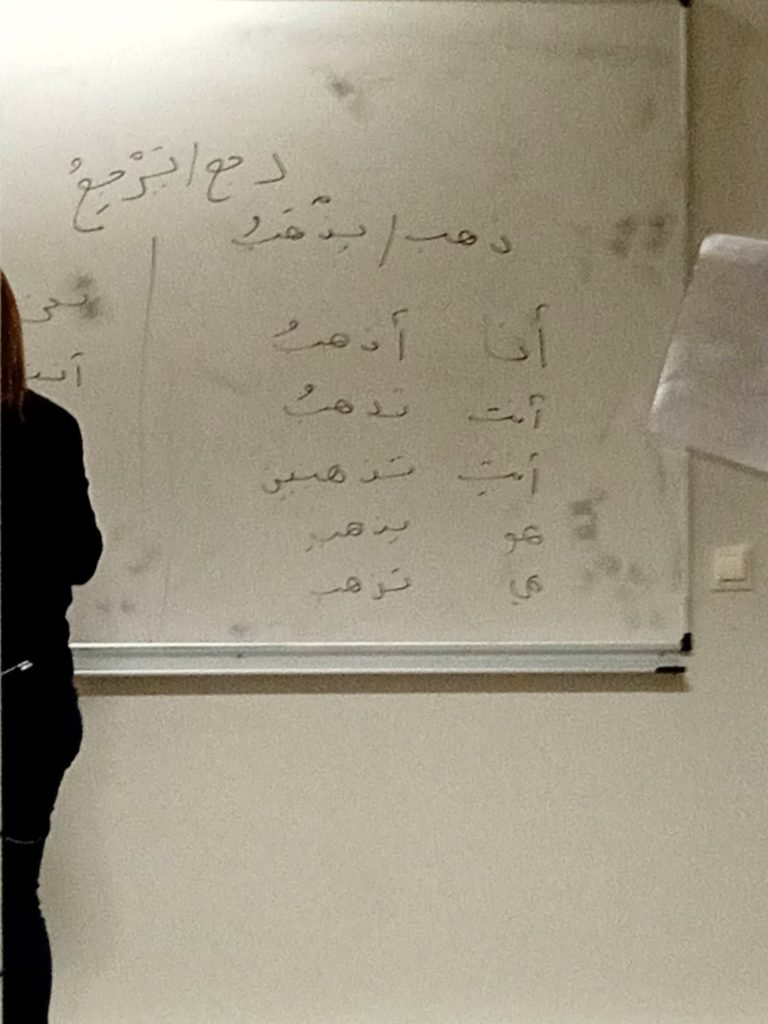 رجع / يَرْجِعُ
ذهب / يذْهَبُ
أنا أذهبُ
أنت تذهبُ
أنتِ تذهبين
هو يذهب
هي تذهب